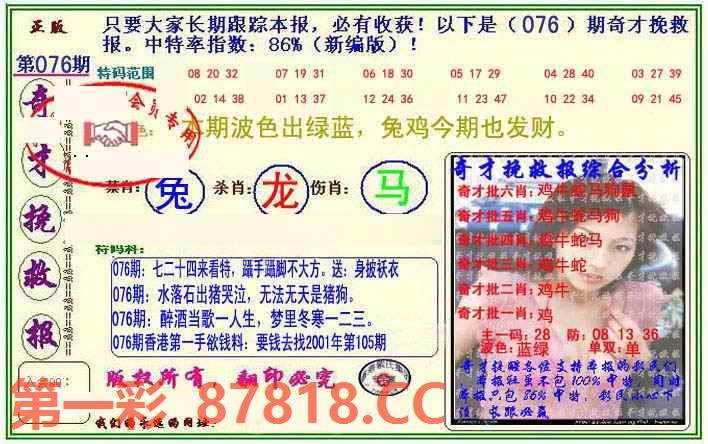 正版
只要大家长期跟踪本报，必有收获！以下是（076）期奇才挽救
报。中特率指数：86%（新编版）！
第076期
特码范围
08 20 32 07 19 31 06 18 30 05 17 29 04 28 40 03 27 39
02 14 38 01 13 37 12 24 36 11 23 47 10 22 34 09 21 45
会员专用
本期波色出绿蓝，兔鸡今期也发财。
奇才挽救报
禁肖：兔 杀肖：龙 伤肖：马
特码料：
076期：七二十四来看特，蹑手蹑脚不大方。送：身披袄衣
076期：水落石出猪哭泣，无法无天是猪狗。
076期：醉酒当歌一人生，梦里冬寒一二三。
076期香港第一手欲钱料：要钱去找2001年第105期
版权所有，翻印必究
奇才挽救报综合分析
奇才批六肖：鸡牛蛇马狗鼠
奇才批五肖：鸡牛蛇马狗
奇才批四肖：鸡牛蛇马
奇才批三肖：鸡牛蛇
奇才批二肖：鸡牛
奇才批一肖：鸡
主一码：28 防：08 13 36
波色：蓝绿 单双：单
奇才提醒各位支持本报的彩民们
本报社虽不包100%中特，同时
本报只包86%中特，彩民小心下
第一彩 87818.CC
我们的永远的网址：